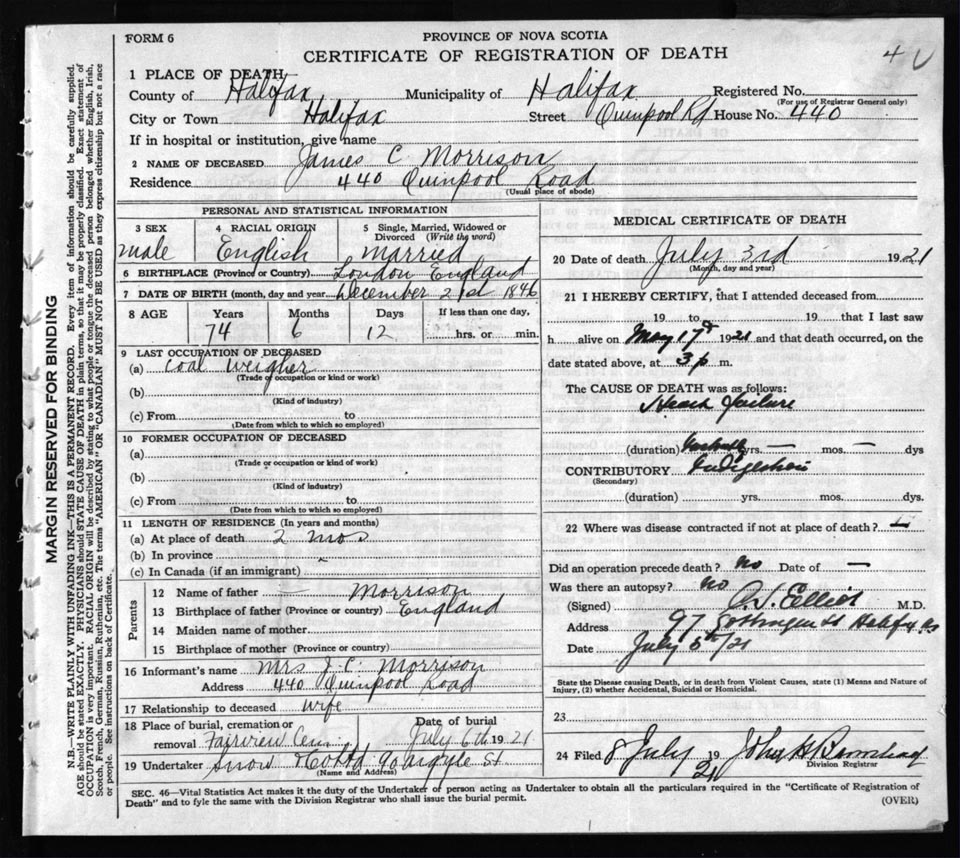 FORM 6
PROVINCE OF NOVA SCOTIA
CERTIFICATE OF REGISTRATION OF DEATH
1 PLACE OF DEATH
County of Halifax Municipality of Halifax Registered No.
(For use of Registrar General only)
City or Town Halifax Street Quinpool Rd House No. 440
If in hospital or institution, give name
2 NAME OF DECEASED James C Morrison
Residence 440 Quinpool Road
(Usual place of abode)
PERSONAL AND STATISTICAL INFORMATION
3 SEX 4 RACIAL ORIGIN 5 Single, Married, Widowed or Divorced (Write the word)
male English Married
6 BIRTHPLACE (Province or Country) London England
7 DATE OF BIRTH (month, day and year December 21st 1846
8 AGE Years Months Days If less than one day,
74 6 12 hrs. or min.
9 LAST OCCUPATION OF DECEASED
(a) Coal Weigher
(Trade or occupation or kind or work)
(b)
(Kind of industry)
(c) From to
(Date from which to which so employed)
10 FORMER OCCUPATION OF DECEASED
(a)
(Trade or occupation or kind or work)
(b)
(Kind of industry)
(c) From to
(Date from which to which so employed)
11 LENGTH OF RESIDENCE (In years and months)
(a) At place of death 2 mos
(b) In province
(c) In Canada (if an immigrant)
Parents
12 Name of father — Morrison
13 Birthplace of father (Province or country) England
14 Maiden name of mother
15 Birthplace of mother (Province or country)
16 Informant's name Mrs J. C. Morrison
Address 440 Quinpool Road
17 Relationship to deceased wife
18 Place of burial, cremation or removal Fairview Cem. Date of burial July 6th 1921
19 Undertaker Snow & Co Ltd 90 Argyle St.
(Name and Address)
MEDICAL CERTIFICATE OF DEATH
20 Date of death July 3rd 1921
(Month, day and year)
21 I HEREBY CERTIFY, that I attended deceased from
19 to 19 that I last saw
h alive on May 17th 1921 and that death occurred, on the
date stated above, at 3 p m.
The CAUSE OF DEATH was as follows:
Heart failure
(duration) yrs. — mos. — dys
CONTRIBUTORY Indigestion
(Secondary)
(duration) yrs. mos. dys.
22 Where was disease contracted if not at place of death?
Did an operation precede death? No Date of —
Was there an autopsy? No
(Signed) Elliot M.D.
Address 97 Gottingen St Halifax
Date July 5th/21
State the Disease causing Death, or in death from Violent Causes, state (1) Means and Nature of Injury, (2) whether Accidental, Suicidal or Homicidal.
23
24 Filed 8 July 1921 John
Division Registrar
SEC. 46—Vital Statistics Act makes it the duty of the Undertaker or person acting as Undertaker to obtain all the particulars required in the "Certificate of Registration of
Death" and to fyle the same with the Division Registrar who shall issue the burial permit.
(OVER)
MARGIN RESERVED FOR BINDING
N.B.—WRITE PLAINLY WITH UNFADING INK—THIS IS A PERMANENT RECORD. Every item of information should be carefully supplied.
AGE should be stated EXACTLY. PHYSICIANS should STATE CAUSE OF DEATH in plain terms, so that it may be properly classified. Exact statement of
OCCUPATION is very important. RACIAL ORIGIN will be described by stating to what people or tongue the deceased person belonged whether English, Irish,
Scotch, French, German, Russian, Ruthenian, etc. The terms "AMERICAN" OR "CANADIAN" MUST NOT BE USED as they express citizenship but not a race
or people. See instructions on back of Certificate.